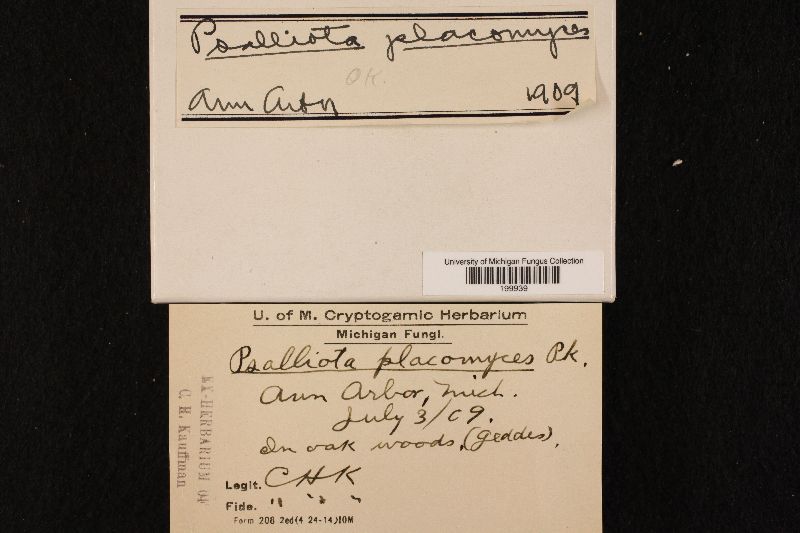 Psalliota placomyces
OK.
Ann Arbor 1909
University of Michigan Fungus Collection
199939
U. of M. Cryptogamic Herbarium
Michigan Fungi.
Psalliota placomyces Pk.
Ann Arbor, Mich.
July 3/09.
In oak woods, (Geddes).
Legit. CHK
Fide. " " "
Form 208 2ed(4 24-14)10M
EX-HERBARIUM OF
C. H. Kauffman